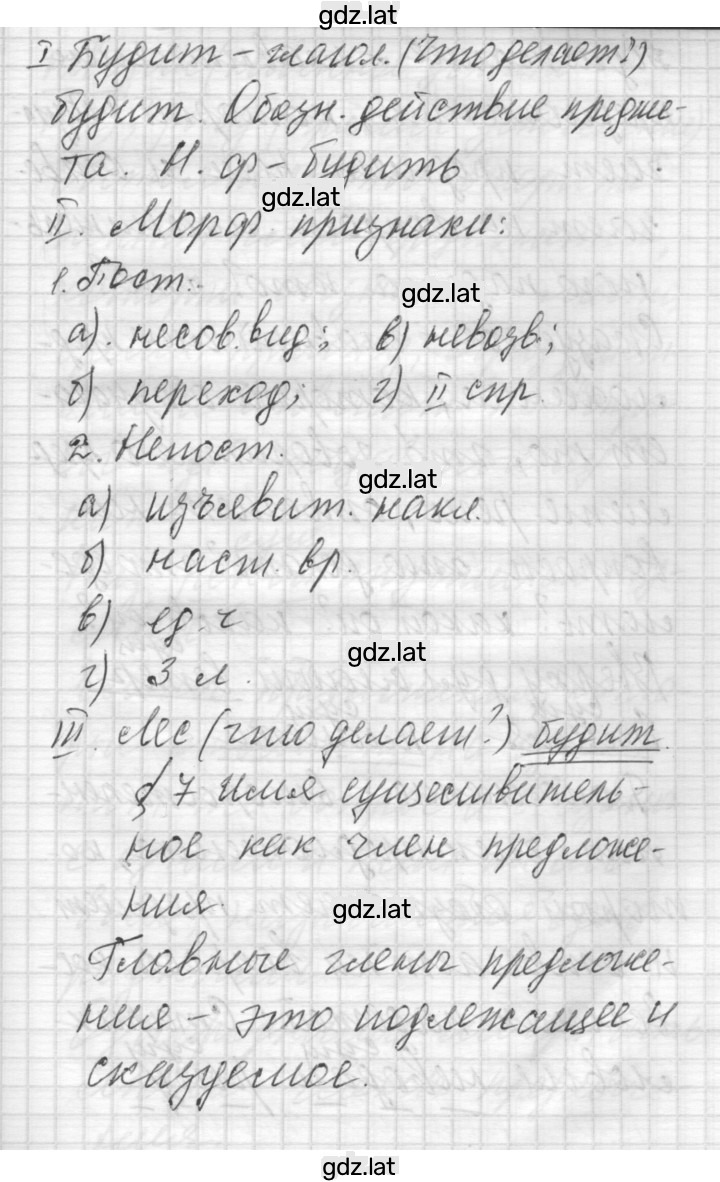 gdz.lat
I Будит – глагол. (Что делает?)
будит. Обозн. действие предме-
та. Н. ф – будить
gdz.lat
II. Морф. признаки:
1. Пост.:
gdz.lat
а). несов. вид; в) невозв.;
б) переход; г) II спр.
2. Непост.
gdz.lat
а) изъявит. накл.
б) наст. вр.
в) ед. ч
г) 3 л.
gdz.lat
III. Лес (что делает?) будит.
§ 7 Имя существитель-
ное как член предложе-
ния.
gdz.lat
Главные члены предложе-
ния – это подлежащее и
сказуемое.
gdz.lat